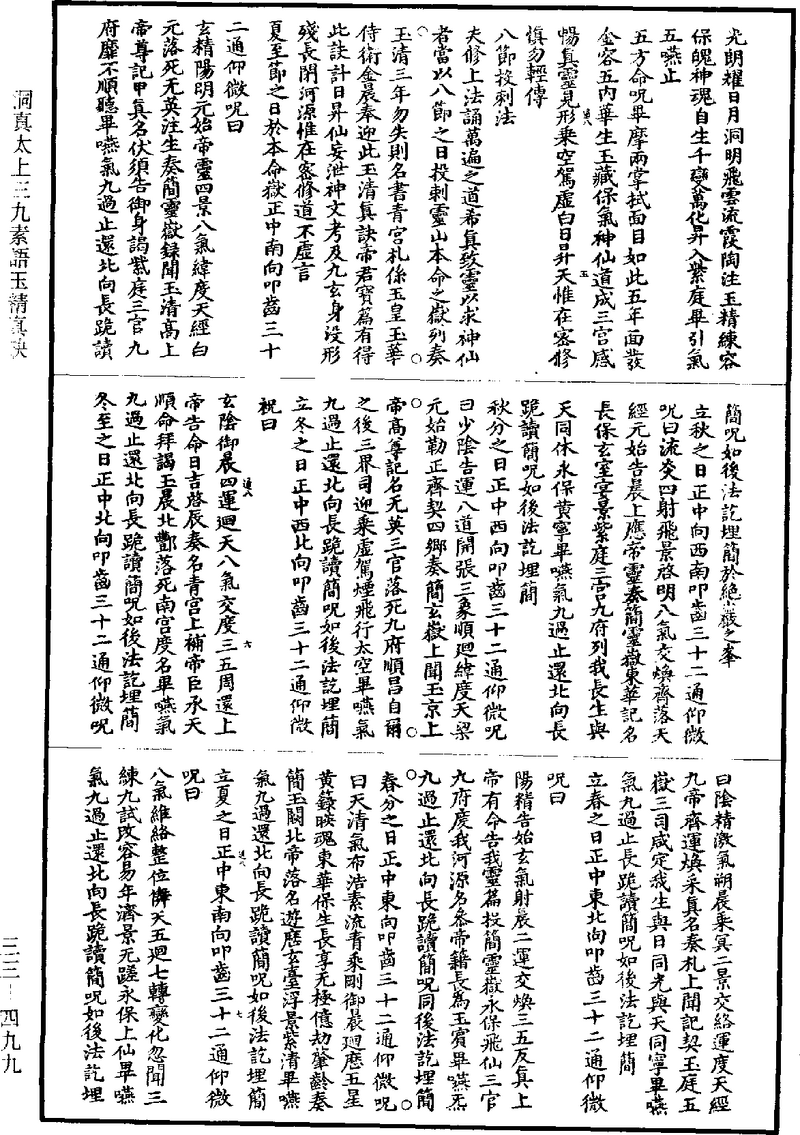 光朗耀日月洞明飛雲流霞陶注玉精練容
保魄神魂自生千變萬化昇入紫庭畢引氣
五嚥止
五方命呪畢摩兩掌拭面目如此五年面發
金容五內華生玉藏保氣神仙道成三宮感
暢真靈見形乗空駕虛白日昇天惟在密修
慎勿輕傳
八節投刺法
夫修上法誦萬遍之道希真致靈以求神仙
者當以八節之日投刺靈山本命之嶽列奏
玉清三年勿失則名書青宮札係玉皇玉華
侍衛金晨奉迎此玉清真訣帝君寶篇有得
此訣計日昇仙妄泄神文考及九玄身没形
殘長閉河源惟在密修道不虛言
夏至節之日於本命嶽正中南向叩齒三十
二通仰微呪曰
玄精陽明元始帝靈四景八氣緯度天經白
元落死无英注生奏簡靈嶽録聞玉清高上
帝尊記甲真名伏須告御身謁紫庭三官九
府靡不順聽畢嚥氣九過止還北向長跪讀
簡呪如後法訖埋簡於絕巖之峯
立秋之日正中向西南叩齒三十二通仰微
呪曰流炎四射飛景啓明八氣交煥齊落天
經元始告晨上應帝靈奏簡靈嶽東華記名
長保玄室宴景紫庭三官九府列我長生與
天同休永保黄寧畢嚥氣九過止還北向長
跪讀簡呪如後法訖埋簡
秋分之日正中西向叩齒三十二通仰微呪
曰少陰告運八道開張三象順迴緯度天梁
元始勒正齊契四鄉奏簡玄嶽上聞玉京上
帝高尊記名无英三官落死九府順昌自爾
之後三界司迎乗虛駕煙飛行太空畢嚥氣
九過止還北向長跪讀簡呪如後法訖埋簡
立冬之日正中西北向叩齒三十二通仰微
祝曰
玄陰御晨四運迴天八氣交度三五周還上
帝告命日吉啓辰奏名青宮上補帝臣承天
順命拜謁玉晨北酆落死南宮度名畢嚥氣
九過止還北向長跪讀簡呪如後法訖埋簡
冬至之日正中北向叩齒三十二通仰微呪
曰陰精激氣朔晨乗冥二景交絡運度天經
九帝齊運煥采真名奏札上聞記契玉庭五
嶽三司咸定我生與日同光與天同寧畢嚥
氣九過止長跪讀簡呪如後法訖埋簡
立春之日正中東北向叩齒三十二通仰微
呪曰
陽精告始玄氣射晨二運交煥三五反真上
帝有命告我靈篇投簡靈嶽永保飛仙三官
九府度我河源名叅帝籍長為玉賓畢嚥炁
九過止還北向長跪讀簡呪同後法訖埋簡
春分之日正中東向叩齒三十二通仰微呪
曰天清氣布浩素流青乗剛御晨迴應五星
黄籙映魂東華保生長享无極億劫肇齡奏
簡玉闕北帝落名遊歷玄臺浮景紫清畢嚥
氣九過還北向長跪讀簡呪如後法訖埋簡
立夏之日正中東南向叩齒三十二通仰微
呪曰
八氣維絡整位憐天五迴七轉變化忽聞三
練九試改容易年濟景无蹉永保上仙畢嚥
氣九過止還北向長跪讀簡呪如後法訖埋
洞真太上三九素語玉精真訣
三三－四九九